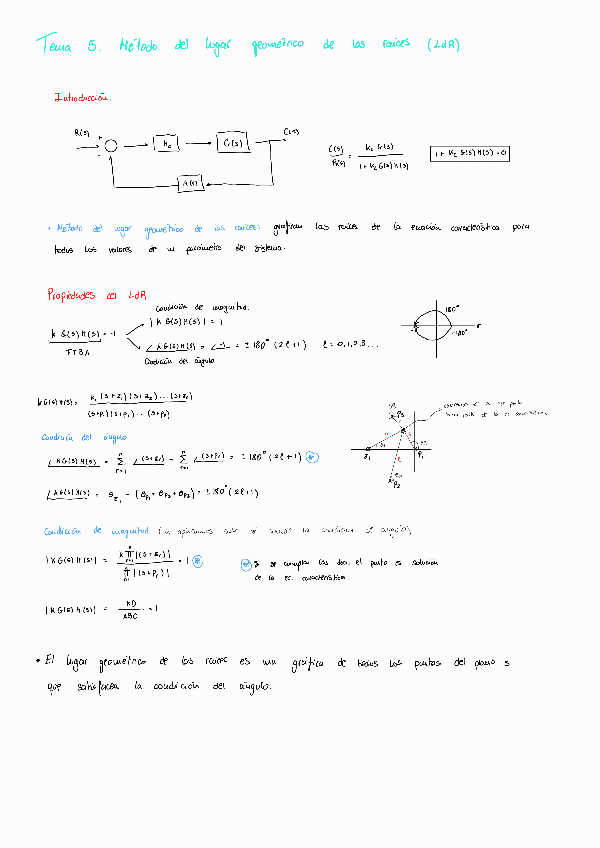 Tema 5. Método del lugar geométrico de las raíces (LdR)
Introducción
R(s) + - Kc G(s) C(s)
H(s)
C(s)/R(s) = Kc G(s) / 1 + Kc G(s) H(s)
1 + Kc G(s) H(s) = 0
• Método del lugar geométrico de las raíces: grafican las raíces de la ecuación característica para
todos los valores de un parámetro del sistema.
Propiedades del LdR
K G(s) H(s) = -1
FTBA
Condición de magnitud.
| K G(s) H(s) | = 1
∠ K G(s) H(s) = ∠ -1 = ± 180° (2ℓ+1) ℓ = 0, 1, 2, 3 ...
Condición del ángulo
180°
-180°
K G(s) H(s) = K (s+z1)(s+z2)...(s+zr) / (s+p1)(s+p2)...(s+pr)
Condición del ángulo
∠ K G(s) H(s) = Σ ∠(s+zr) - Σ ∠(s+pr) = ± 180° (2ℓ+1) *
∠ K G(s) H(s) = θz1 - (θp1 + θp2 + θp3) = ± 180° (2ℓ+1)
z1 p1
p2
p3
Condición de magnitud
| K G(s) H(s) | = K Π |(s+zr)| / Π |(s+pr)| = 1 *
* Si se cumplen las dos, el punto es solución
de la ec. característica.
| K G(s) H(s) | = KD / ABC = 1
• El lugar geométrico de las raíces es una gráfica de todos los puntos del plano s
que satisfacen la condición del ángulo.